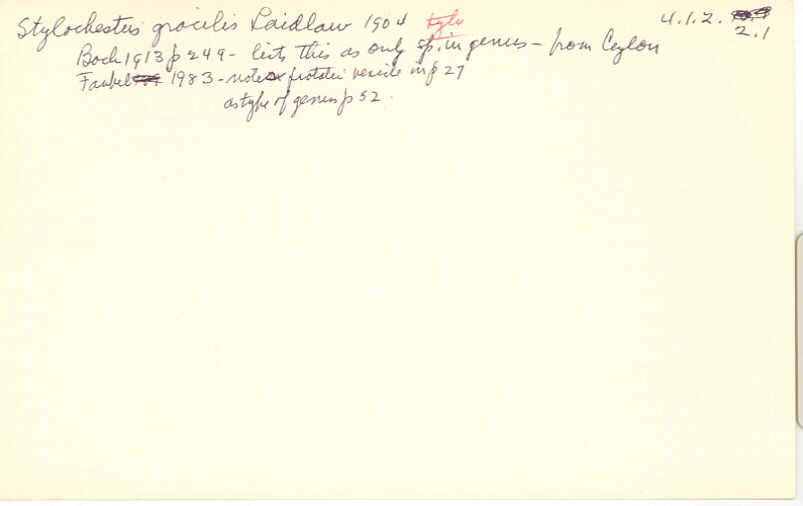 Stylochestus gracilis Laidlaw 1904 type 4.1.2.
2.1
Bock 1913 p 249 - lists this as only sp. in genus - from Ceylon
Faubel 1983 - notes prostatic vesicle in p 27
as type of genus p 52.